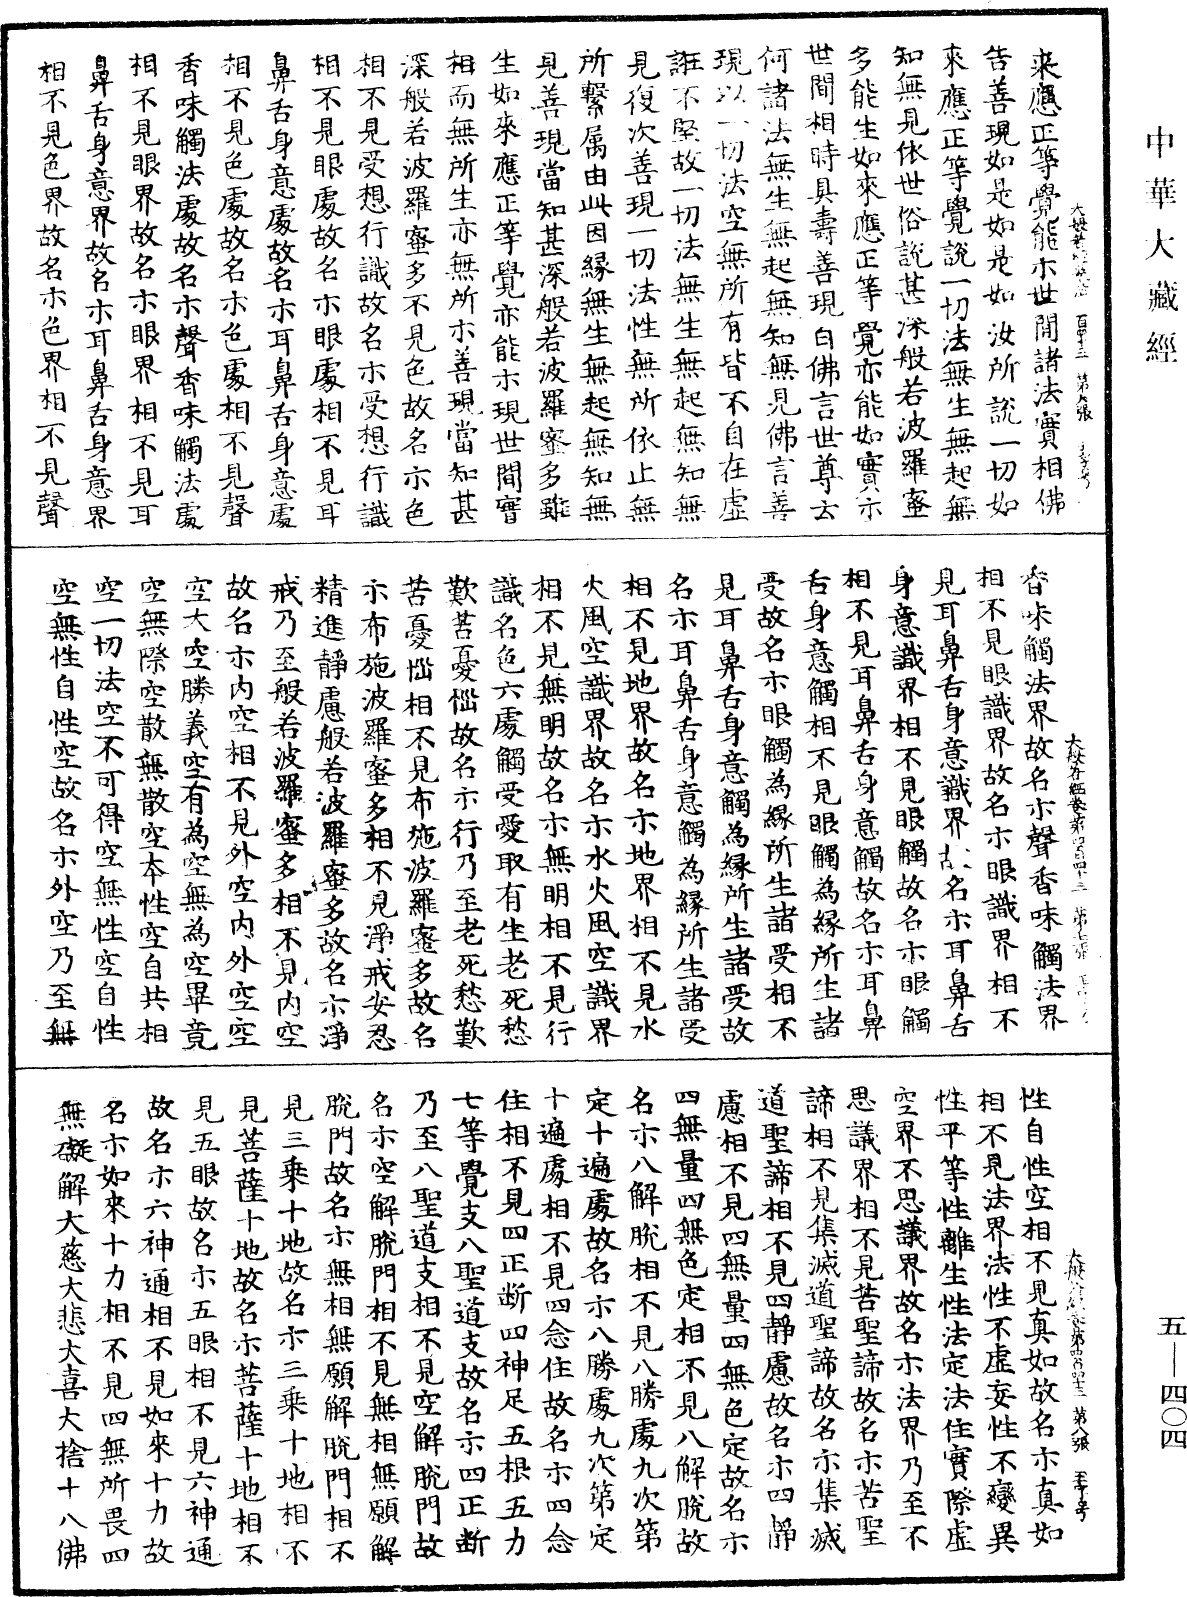 中華大藏經
来應正等覺能示世間諸法實相佛
告善現如是如是如汝所說一切如
來應正等覺說一切法無生無起無
知無見依世俗說甚深般若波羅蜜
多能生如來應正等覺亦能如實示
世間相時具壽善現白佛言世尊云
何諸法無生無起無知無見佛言善
現以一切法空無所有皆不自在虛
誑不堅故一切法無生無起無知無
見復次善現一切法性無所依止無
所繫属由此因緣無生無起無知無
見善現當知甚深般若波羅蜜多雖
生如來應正等覺亦能示現世間實
相而無所生亦無所示善現當知甚
深般若波羅蜜多不見色故名示色
相不見受想行識故名示受想行識
相不見眼處故名示眼處相不見耳
鼻舌身意處故名示耳鼻舌身意處
相不見色處故名示色處相不見聲
香味觸法處故名示聲香味觸法處
相不見眼界故名示眼界相不見耳
鼻舌身意界故名示耳鼻舌身意界
相不見色界故名示色界相不見聲
大般若經卷第四百四十三 第七張
香味觸法界故名示聲香味觸法界
相不見眼識界故名示眼識界相不
見耳鼻舌身意識界故名示耳鼻舌
身意識界相不見眼觸故名示眼觸
相不見耳鼻舌身意觸故名示耳鼻
舌身意觸相不見眼觸為緣所生諸
受故名示眼觸為緣所生諸受相不
見耳鼻舌身意觸為緣所生諸受故
名示耳鼻舌身意觸為緣所生諸受
相不見地界故名示地界相不見水
火風空識界故名示水火風空識界
相不見無明故名示無明相不見行
識名色六處觸受愛取有生老死愁
歎苦憂惱故名示行乃至老死愁歎
苦憂惱相不見布施波羅蜜多故名
示布施波羅蜜多相不見淨戒安忍
精進靜慮般若波羅蜜多故名示淨
戒乃至般若波羅蜜多相不見內空
故名示內空相不見外空內外空空
空大空勝義空有為空無為空畢竟
空無際空散無散空本性空自共相
空一切法空不可得空無性空自性
空無性自性空故名示外空乃至無
性自性空相不見真如故名示真如
相不見法界法性不虛妄性不變異
性平等性離生性法定法住實際虛
空界不思議界故名示法界乃至不
思議界相不見苦聖諦故名示苦聖
諦相不見集滅道聖諦故名示集滅
道聖諦相不見四靜慮故名示四靜
慮相不見四無量四無色定故名示
四無量四無色定相不見八解脫故
名示八解脫相不見八勝處九次第
定十遍處故名示八勝處九次第定
十遍處相不見四念住故名示四念
住相不見四正断四神足五根五力
七等覺支八聖道支故名示四正断
乃至八聖道支相不見空解脫門故
名示空解脫門相不見無相無願解
脫門故名示無相無願解脫門相不
見三乘十地故名示三乘十地相不
見菩薩十地故名示菩薩十地相不
見五眼故名示五眼相不見六神通
故名示六神通相不見如來十力故
名示如來十力相不見四無所畏四
無礙解大慈大悲大喜大捨十八佛
五—四〇四